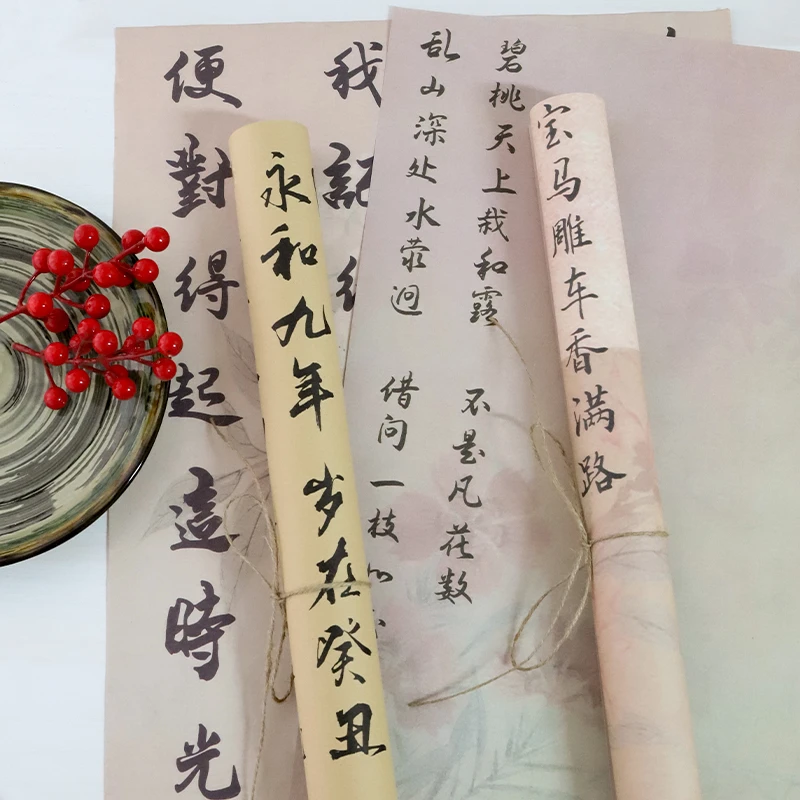 宝马雕车香满路
碧桃天上栽和露
不是凡花数
乱山深处水萦迴
借问一枝如
永和九年 岁在癸丑
我記
便對得起這時光